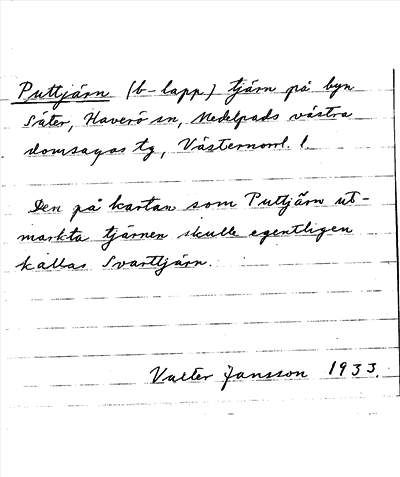 Puttjärn (b-lapp) tjärn på byn
Säter, Haverö sn, Medelpads västra
domsagas tg, Västernorrl. l.
Den på kartan som Puttjärn ut-
märkta tjärnen skulle egentligen
kallas Svarttjärn.
Valter Jansson 1933.